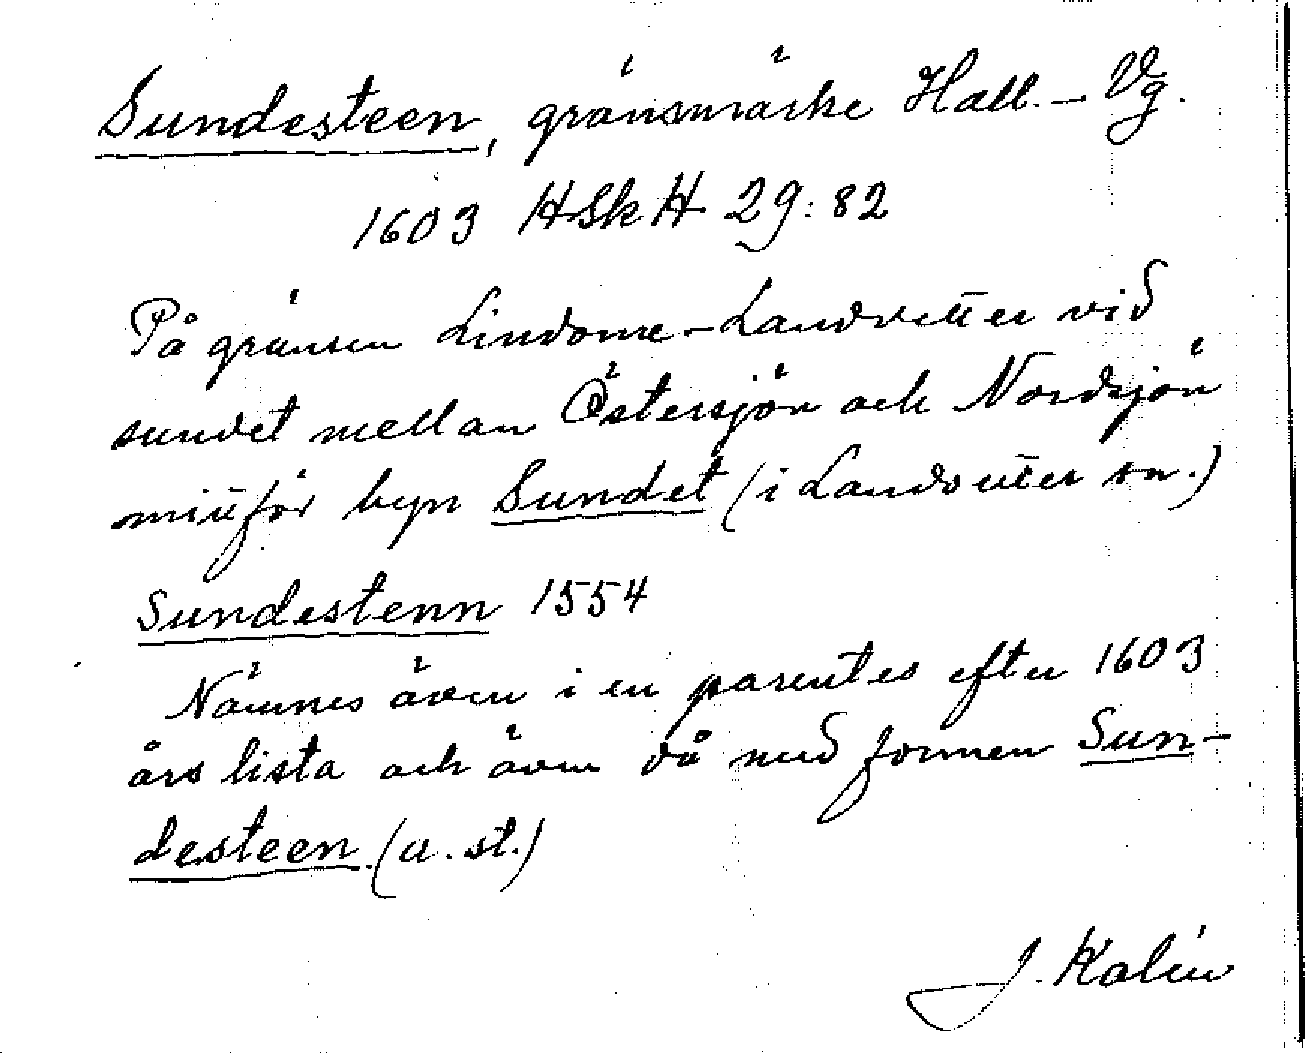 Sundesteen, gränsmärke Hall. – Vg.
1603 HSkH 29:82
På gränsen Lindome – Landvetter vid
sundet mellan Östersjön och Nordsjön
mittför byn Sundet (i Landvetter sn.)
Sundestenn 1554
Nämnes även i en parentes efter 1603
års lista och även då med formen Sun-
desteen (a. st.)
J. Kalén